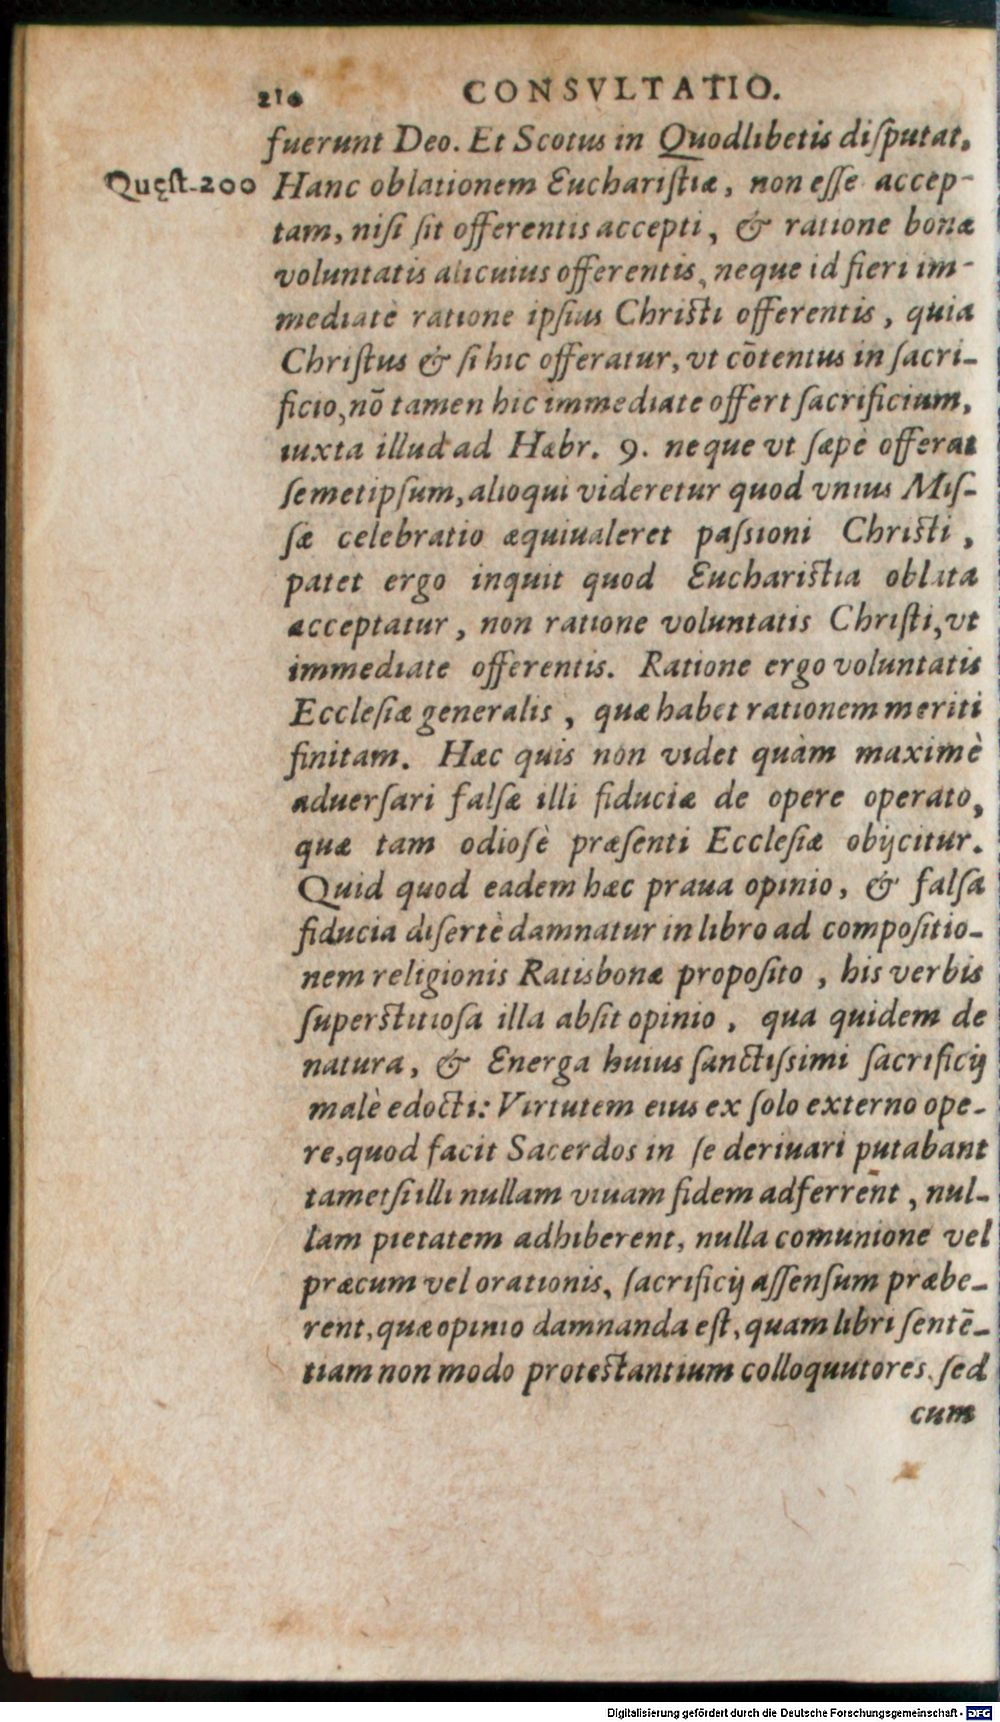 210 CONSVLTATIO.
fuerunt Deo. Et Scotus in Quodlibetis diſputat,
Quęſt. 200 Hanc oblationem Euchariſtiæ, non eſſe accep-
tam, niſi ſit offerentis accepti, & ratione bonæ
voluntatis alicuius offerentis, neque id fieri im-
mediatè ratione ipſius Chriſti offerentis, quia
Chriſtus & ſi hic offeratur, vt cōtentus in ſacri-
ficio, nō tamen hic immediate offert ſacrificium,
iuxta illud ad Hæbr. 9. neque vt ſæpè offerat
ſemetipſum, alioqui videretur quod vnius Miſ-
ſæ celebratio æquiualeret paſsioni Chriſti,
patet ergo inquit quod Euchariſtia oblata
acceptatur, non ratione voluntatis Chriſti, vt
immediate offerentis. Ratione ergo voluntatis
Eccleſiæ generalis, quæ habet rationem meriti
finitam. Hæc quis non videt quàm maximè
aduerſari falſæ illi fiduciæ de opere operato,
quæ tam odioſè præſenti Eccleſiæ obijcitur.
Quid quod eadem hæc praua opinio, & falſa
fiducia diſertè damnatur in libro ad compoſitio-
nem religionis Ratisbonæ propoſito, his verbis
ſuperſtitioſa illa abſit opinio, qua quidem de
natura, & Energa huius ſanctiſsimi ſacrificij
malè edocti: Virtutem eius ex ſolo externo ope-
re, quod facit Sacerdos in ſe deriuari putabant
tametſi illi nullam viuam fidem adferrent, nul-
lam pietatem adhiberent, nulla comunione vel
præcum vel orationis, ſacrificij aſſenſum præbe-
rent, quæ opinio damnanda eſt, quam libri ſentē-
tiam non modo proteſtantium colloquutores, ſed
cum
Digitalisierung gefördert durch die Deutsche Forschungsgemeinschaft - DFG